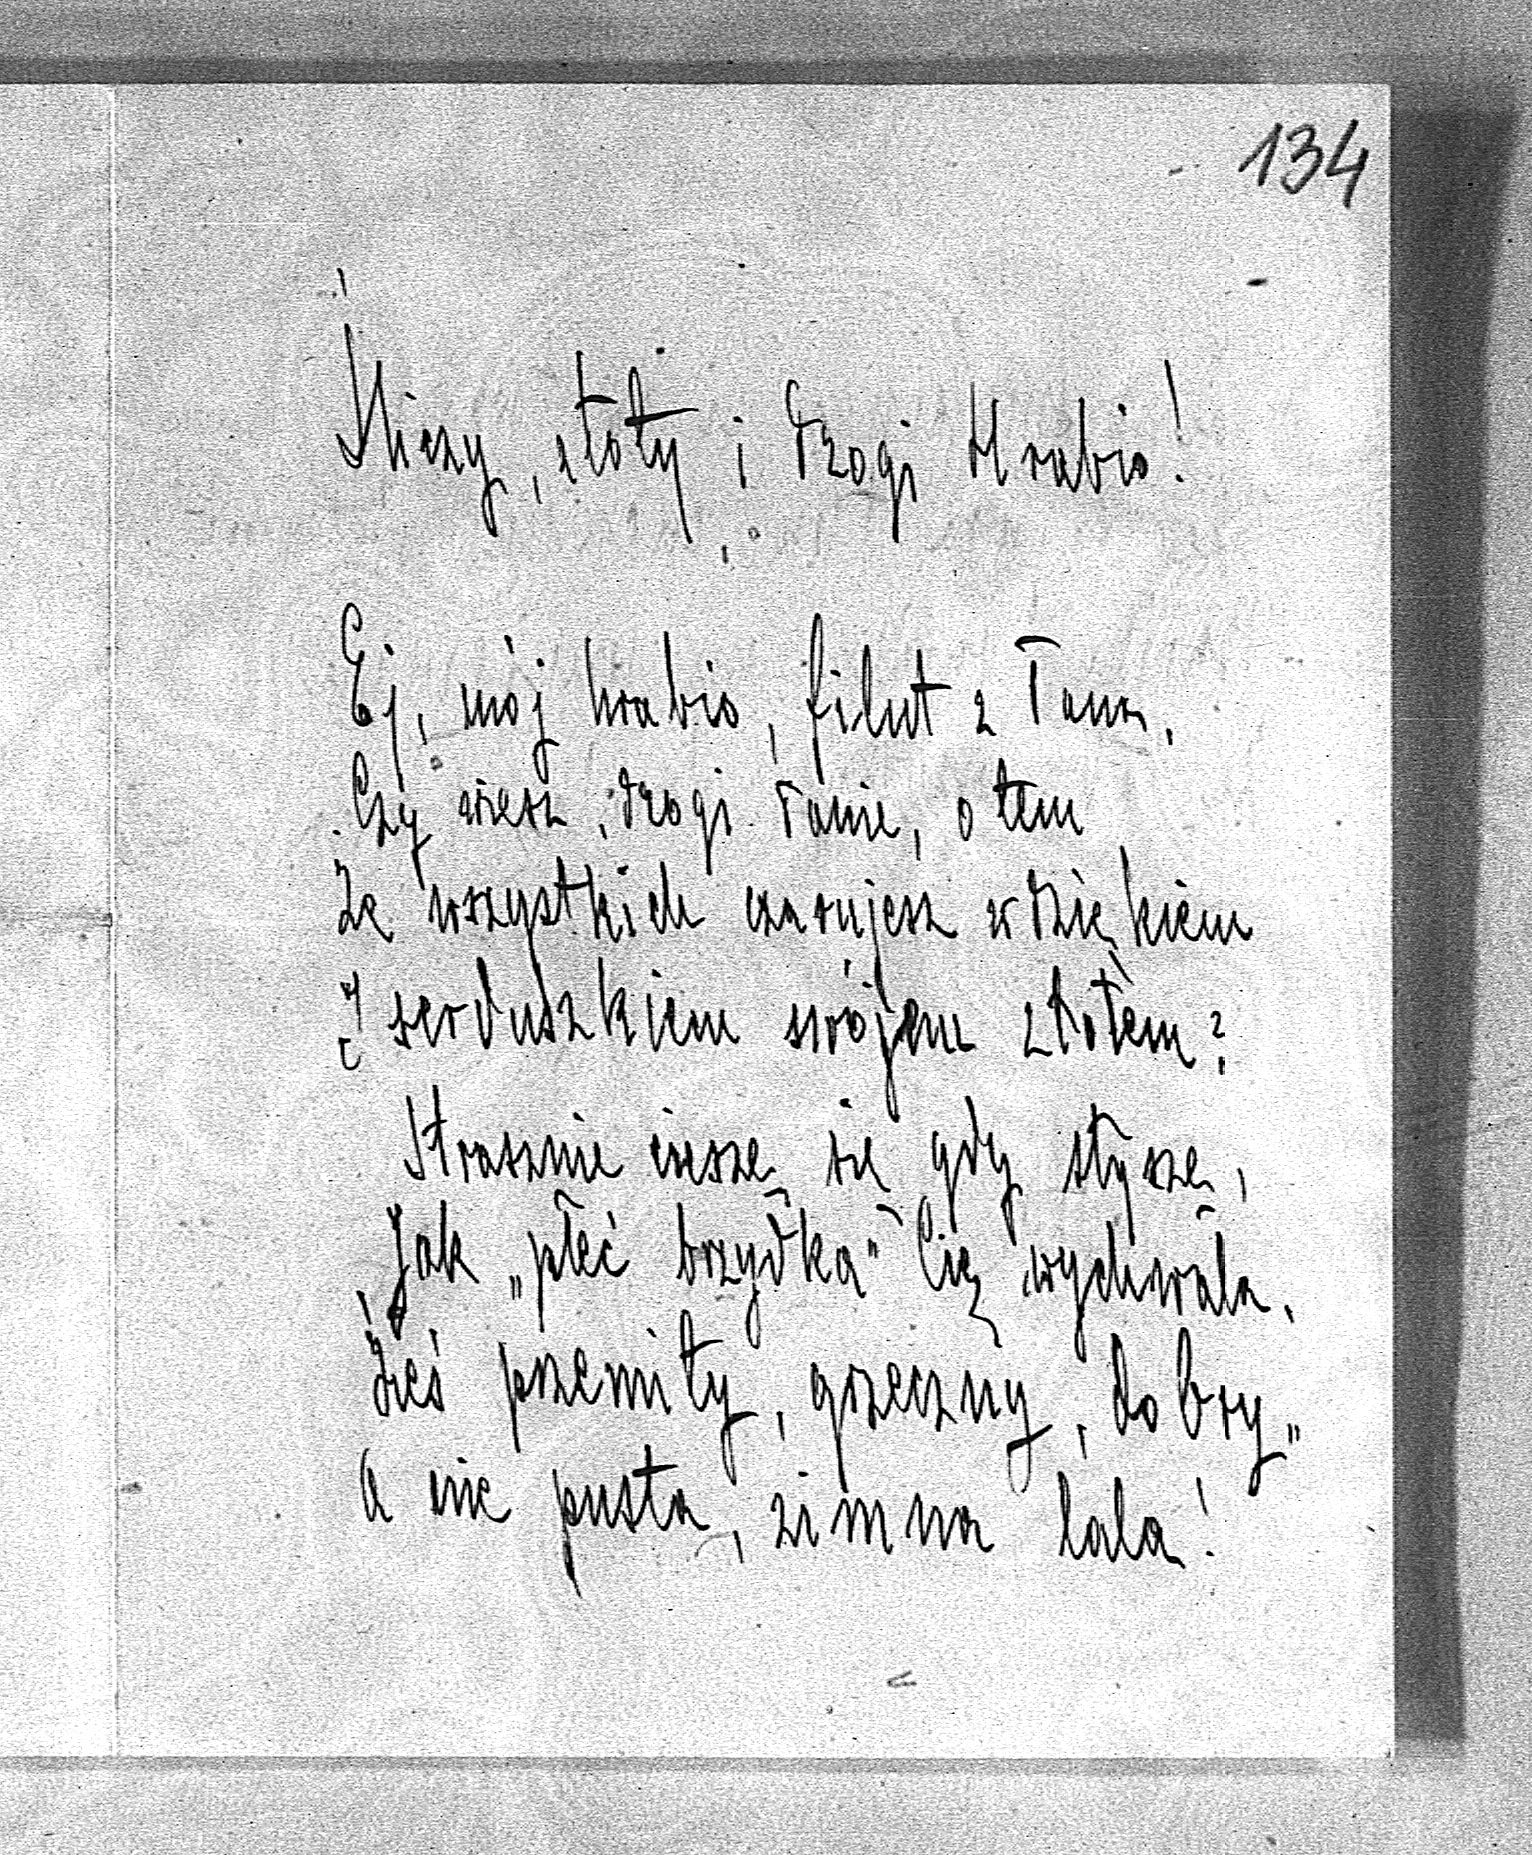 134
Śliczny, złoty i drogi Hrabio!
Ej, mój hrabio, filut z Pana,
Czy wiesz, drogi Panie, o tem
Że wszystkich czarujesz wdziękiem
I serduszkiem swojem złotem?
Strasznie cieszę się gdy słyszę,
Jak „płeć brzydka" Cię wychwala,
Żeś przemiły, grzeczny, dobry„
A nie pusta, zimna lala!